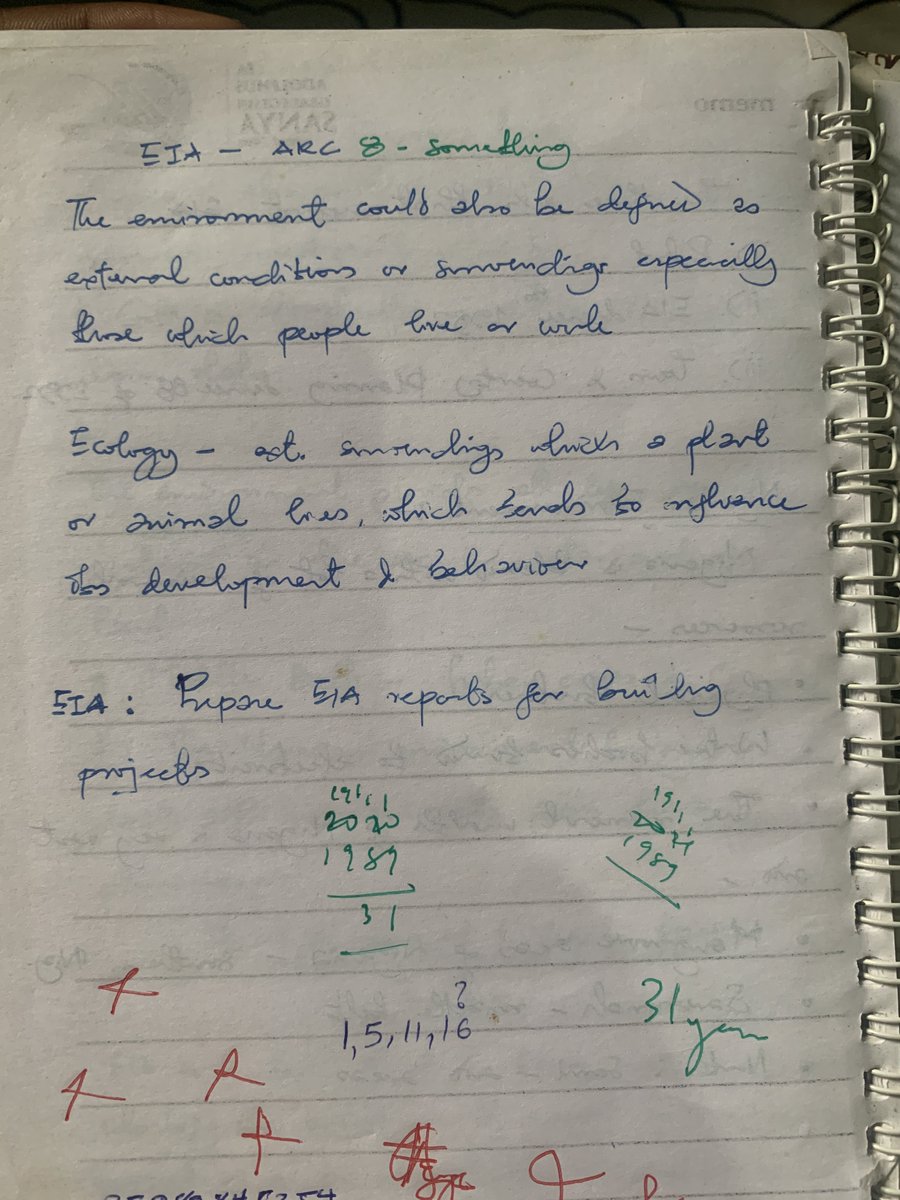 EIA - ARC 8 - something
The environment could also be defined as
external conditions or surrondings especially
those which people live or work
Ecology - ast. surrondings which a plant
or animal lives, which tends to influence
its development & behaviour
EIA: Prepare EIA reports for building
projects
2020
1989
31
1989
?
1, 5, 11, 16
31 years